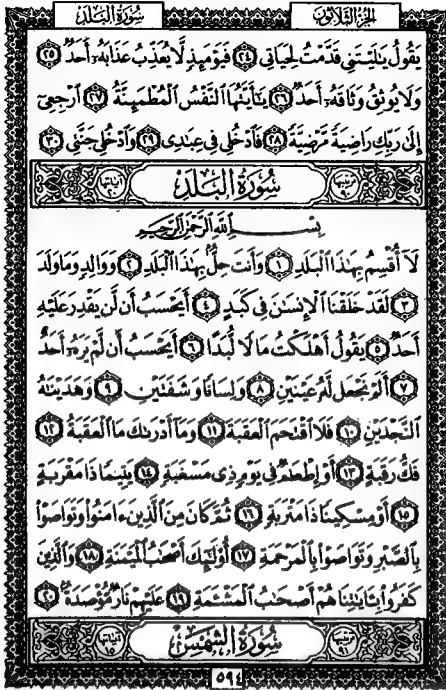 الجزء الثلاثون سورة البلد
يَقُولُ يَٰلَيْتَنِي قَدَّمْتُ لِحَيَاتِي ٢٤ فَيَوْمَئِذٍ لَّا يُعَذِّبُ عَذَابَهُۥٓ أَحَدٌ ٢٥
وَلَا يُوثِقُ وَثَاقَهُۥٓ أَحَدٌ ٢٦ يَٰٓأَيَّتُهَا ٱلنَّفْسُ ٱلْمُطْمَئِنَّةُ ٢٧ ٱرْجِعِىٓ
إِلَىٰ رَبِّكِ رَاضِيَةً مَّرْضِيَّةً ٢٨ فَٱدْخُلِى فِى عِبَٰدِى ٢٩ وَٱدْخُلِى جَنَّتِى ٣٠
ترتيبها ٩٠ سورة البلد آياتها ٢٠
بِسْمِ ٱللَّهِ ٱلرَّحْمَٰنِ ٱلرَّحِيمِ
لَآ أُقْسِمُ بِهَٰذَا ٱلْبَلَدِ ١ وَأَنتَ حِلٌّۢ بِهَٰذَا ٱلْبَلَدِ ٢ وَوَالِدٍ وَمَا وَلَدَ
٣ لَقَدْ خَلَقْنَا ٱلْإِنسَٰنَ فِى كَبَدٍ ٤ أَيَحْسَبُ أَن لَّن يَقْدِرَ عَلَيْهِ
أَحَدٌ ٥ يَقُولُ أَهْلَكْتُ مَالًا لُّبَدًا ٦ أَيَحْسَبُ أَن لَّمْ يَرَهُۥٓ أَحَدٌ
٧ أَلَمْ نَجْعَل لَّهُۥ عَيْنَيْنِ ٨ وَلِسَانًا وَشَفَتَيْنِ ٩ وَهَدَيْنَٰهُ
ٱلنَّجْدَيْنِ ١٠ فَلَا ٱقْتَحَمَ ٱلْعَقَبَةَ ١١ وَمَآ أَدْرَىٰكَ مَا ٱلْعَقَبَةُ ١٢
فَكُّ رَقَبَةٍ ١٣ أَوْ إِطْعَٰمٌ فِى يَوْمٍ ذِى مَسْغَبَةٍ ١٤ يَتِيمًا ذَا مَقْرَبَةٍ
١٥ أَوْ مِسْكِينًا ذَا مَتْرَبَةٍ ١٦ ثُمَّ كَانَ مِنَ ٱلَّذِينَ ءَامَنُوا۟ وَتَوَاصَوْا۟
بِٱلصَّبْرِ وَتَوَاصَوْا۟ بِٱلْمَرْحَمَةِ ١٧ أُو۟لَٰٓئِكَ أَصْحَٰبُ ٱلْمَيْمَنَةِ ١٨ وَٱلَّذِينَ
كَفَرُوا۟ بِـَٔايَٰتِنَا هُمْ أَصْحَٰبُ ٱلْمَشْـَٔمَةِ ١٩ عَلَيْهِمْ نَارٌ مُّؤْصَدَةٌۢ ٢٠
ترتيبها ٩١ سورة الشمس آياتها ١٥
٥٩٤